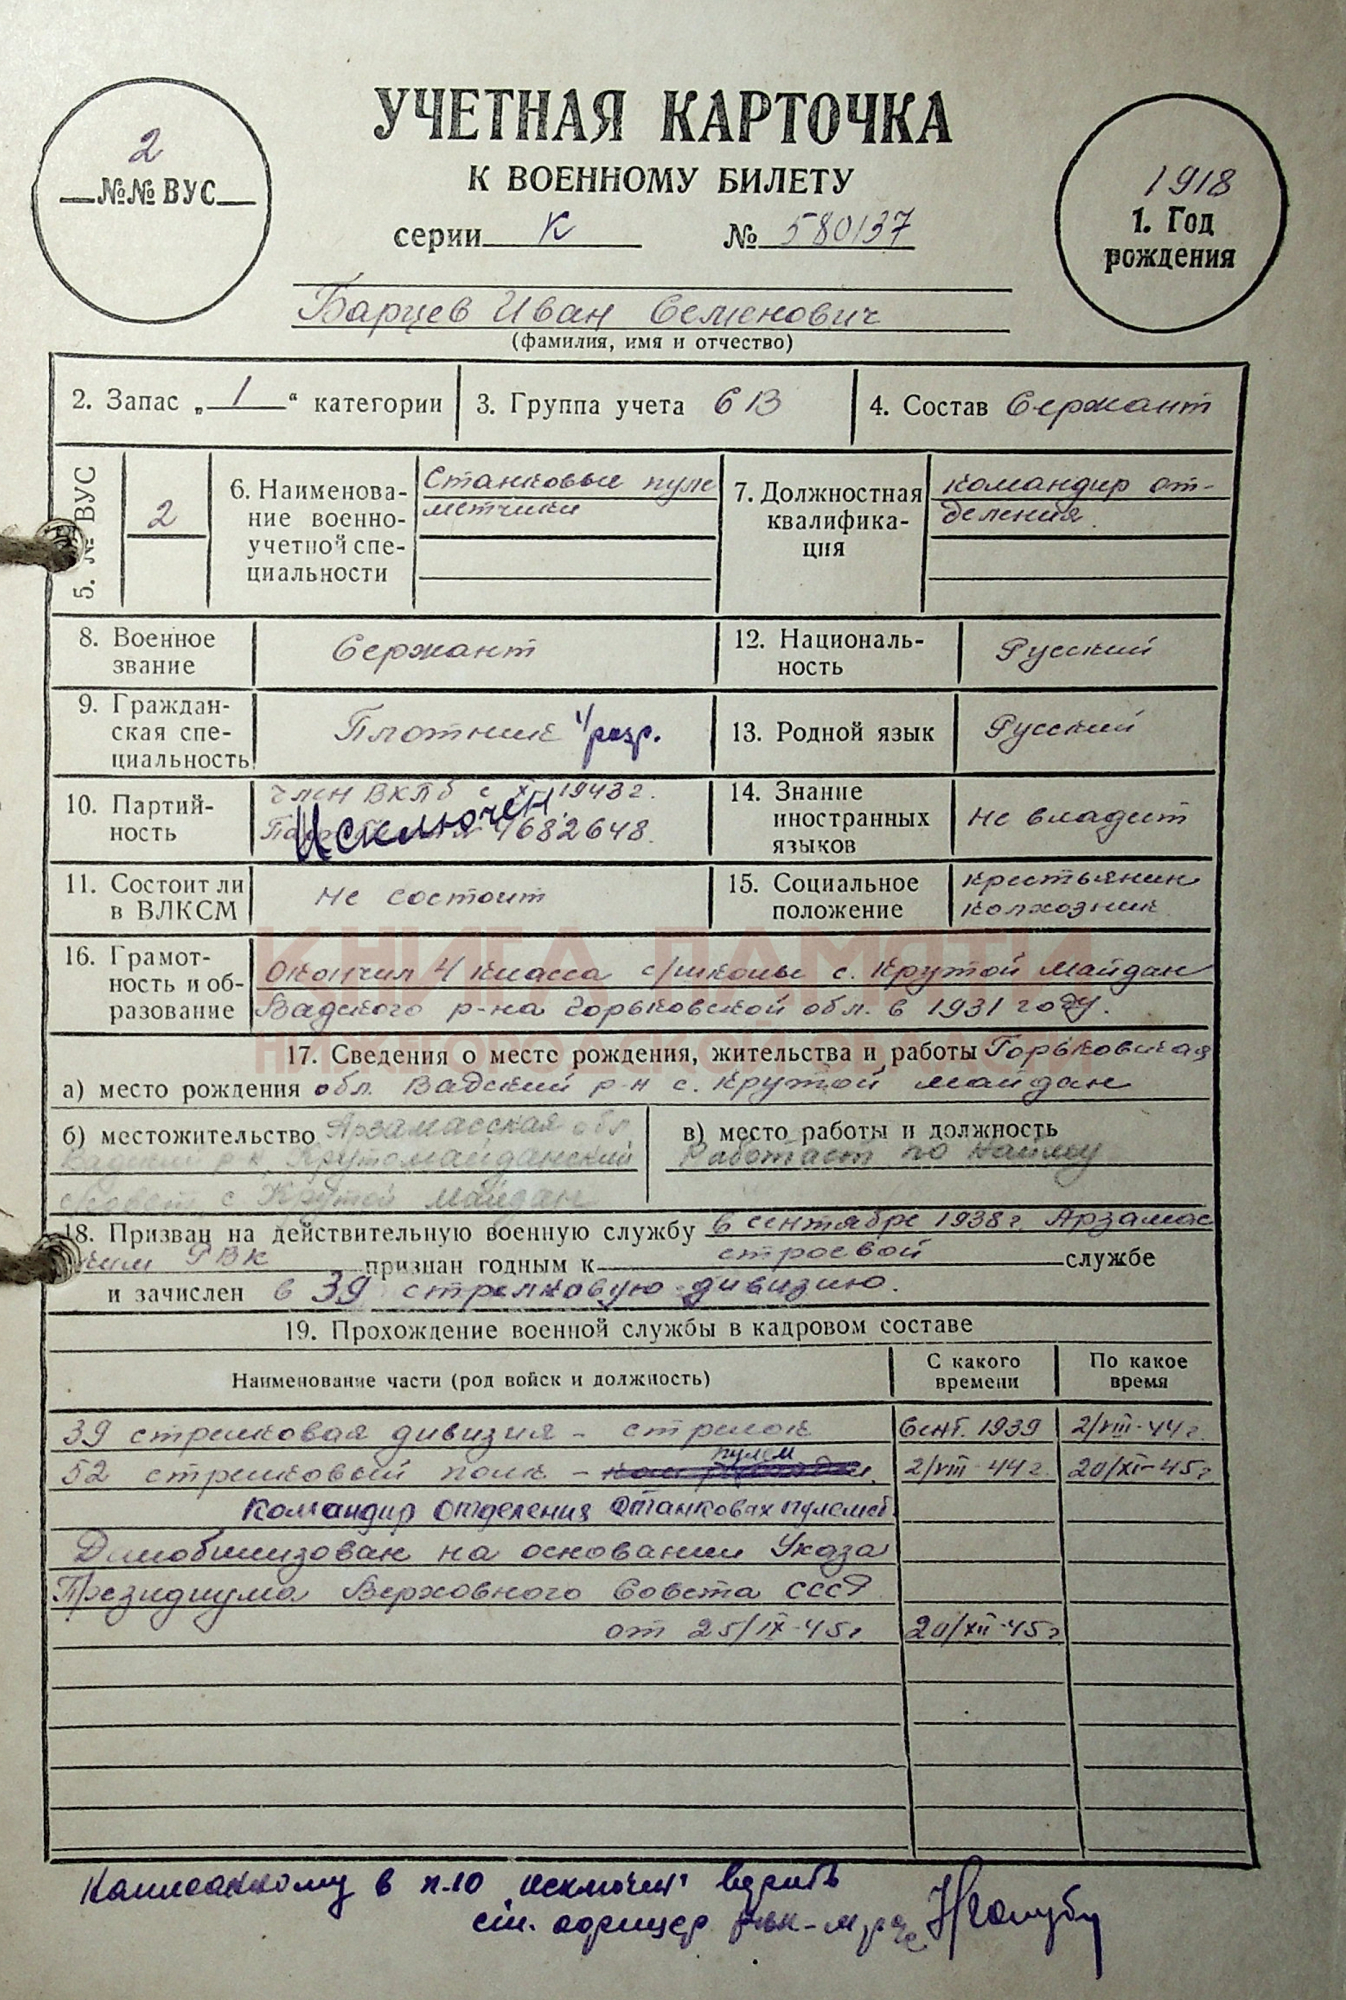 УЧЕТНАЯ КАРТОЧКА
К ВОЕННОМУ БИЛЕТУ
серии К № 580137
2
№№ ВУС
1918
1. Год
рождения
Барцев Иван Семенович
(фамилия, имя и отчество)
2. Запас „ 1 “ категории
3. Группа учета 6 В
4. Состав Сержант
5. № ВУС
2
6. Наименова-
ние военно-
учетной спе-
циальности
Станковые пуле
метчики
7. Должностная
квалифика-
ция
командир от-
деления.
8. Военное
звание
Сержант
12. Националь-
ность
Русский
9. Граждан-
ская спе-
циальность
Плотник 1/разр.
13. Родной язык
Русский
10. Партий-
ность
член ВКПб с X-1943 г.
4682648.
Исключен
14. Знание
иностранных
языков
Не владеит
11. Состоит ли
в ВЛКСМ
Не состоит
15. Социальное
положение
крестьянин
колхозник
16. Грамот-
ность и об-
разование
Окончил 4 класса с/школы с. Крутой Майдан
Вадского р-на Горьковской обл. в 1931 году.
КНИГА ПАМЯТИ
НИЖЕГОРОДСКОЙ ОБЛАСТИ
17. Сведения о месте рождения, жительства и работы Горьковская
а) место рождения обл. Вадский р-н с. Крутой майдан
б) местожительство Арзамасская обл.
Вадский р-н, Крутомайданский
с/совет, с. Крутой майдан
в) место работы и должность
Работает по найму
18. Призван на действительную военную службу в сентябре 1938 г. Арзамас
ким РВК признан годным к строевой службе
и зачислен в 39 стрелковую дивизию.
19. Прохождение военной службы в кадровом составе
Наименование части (род войск и должность)
С какого
времени
По какое
время
39 стрелковая дивизия - стрелок
Сент. 1939
2/VIII-44 г.
52 стрелковый полк -
пулем
2/VIII 44 г.
20/XI-45 г
Командир отделения Станковах пулемет.
Демобилизован на основании Указа
Президиума Верховного Совета СССР
от 25/IX-45 г
20/XII-45 г
Написанному в п. 10 "исключен" верить
ст. офицер